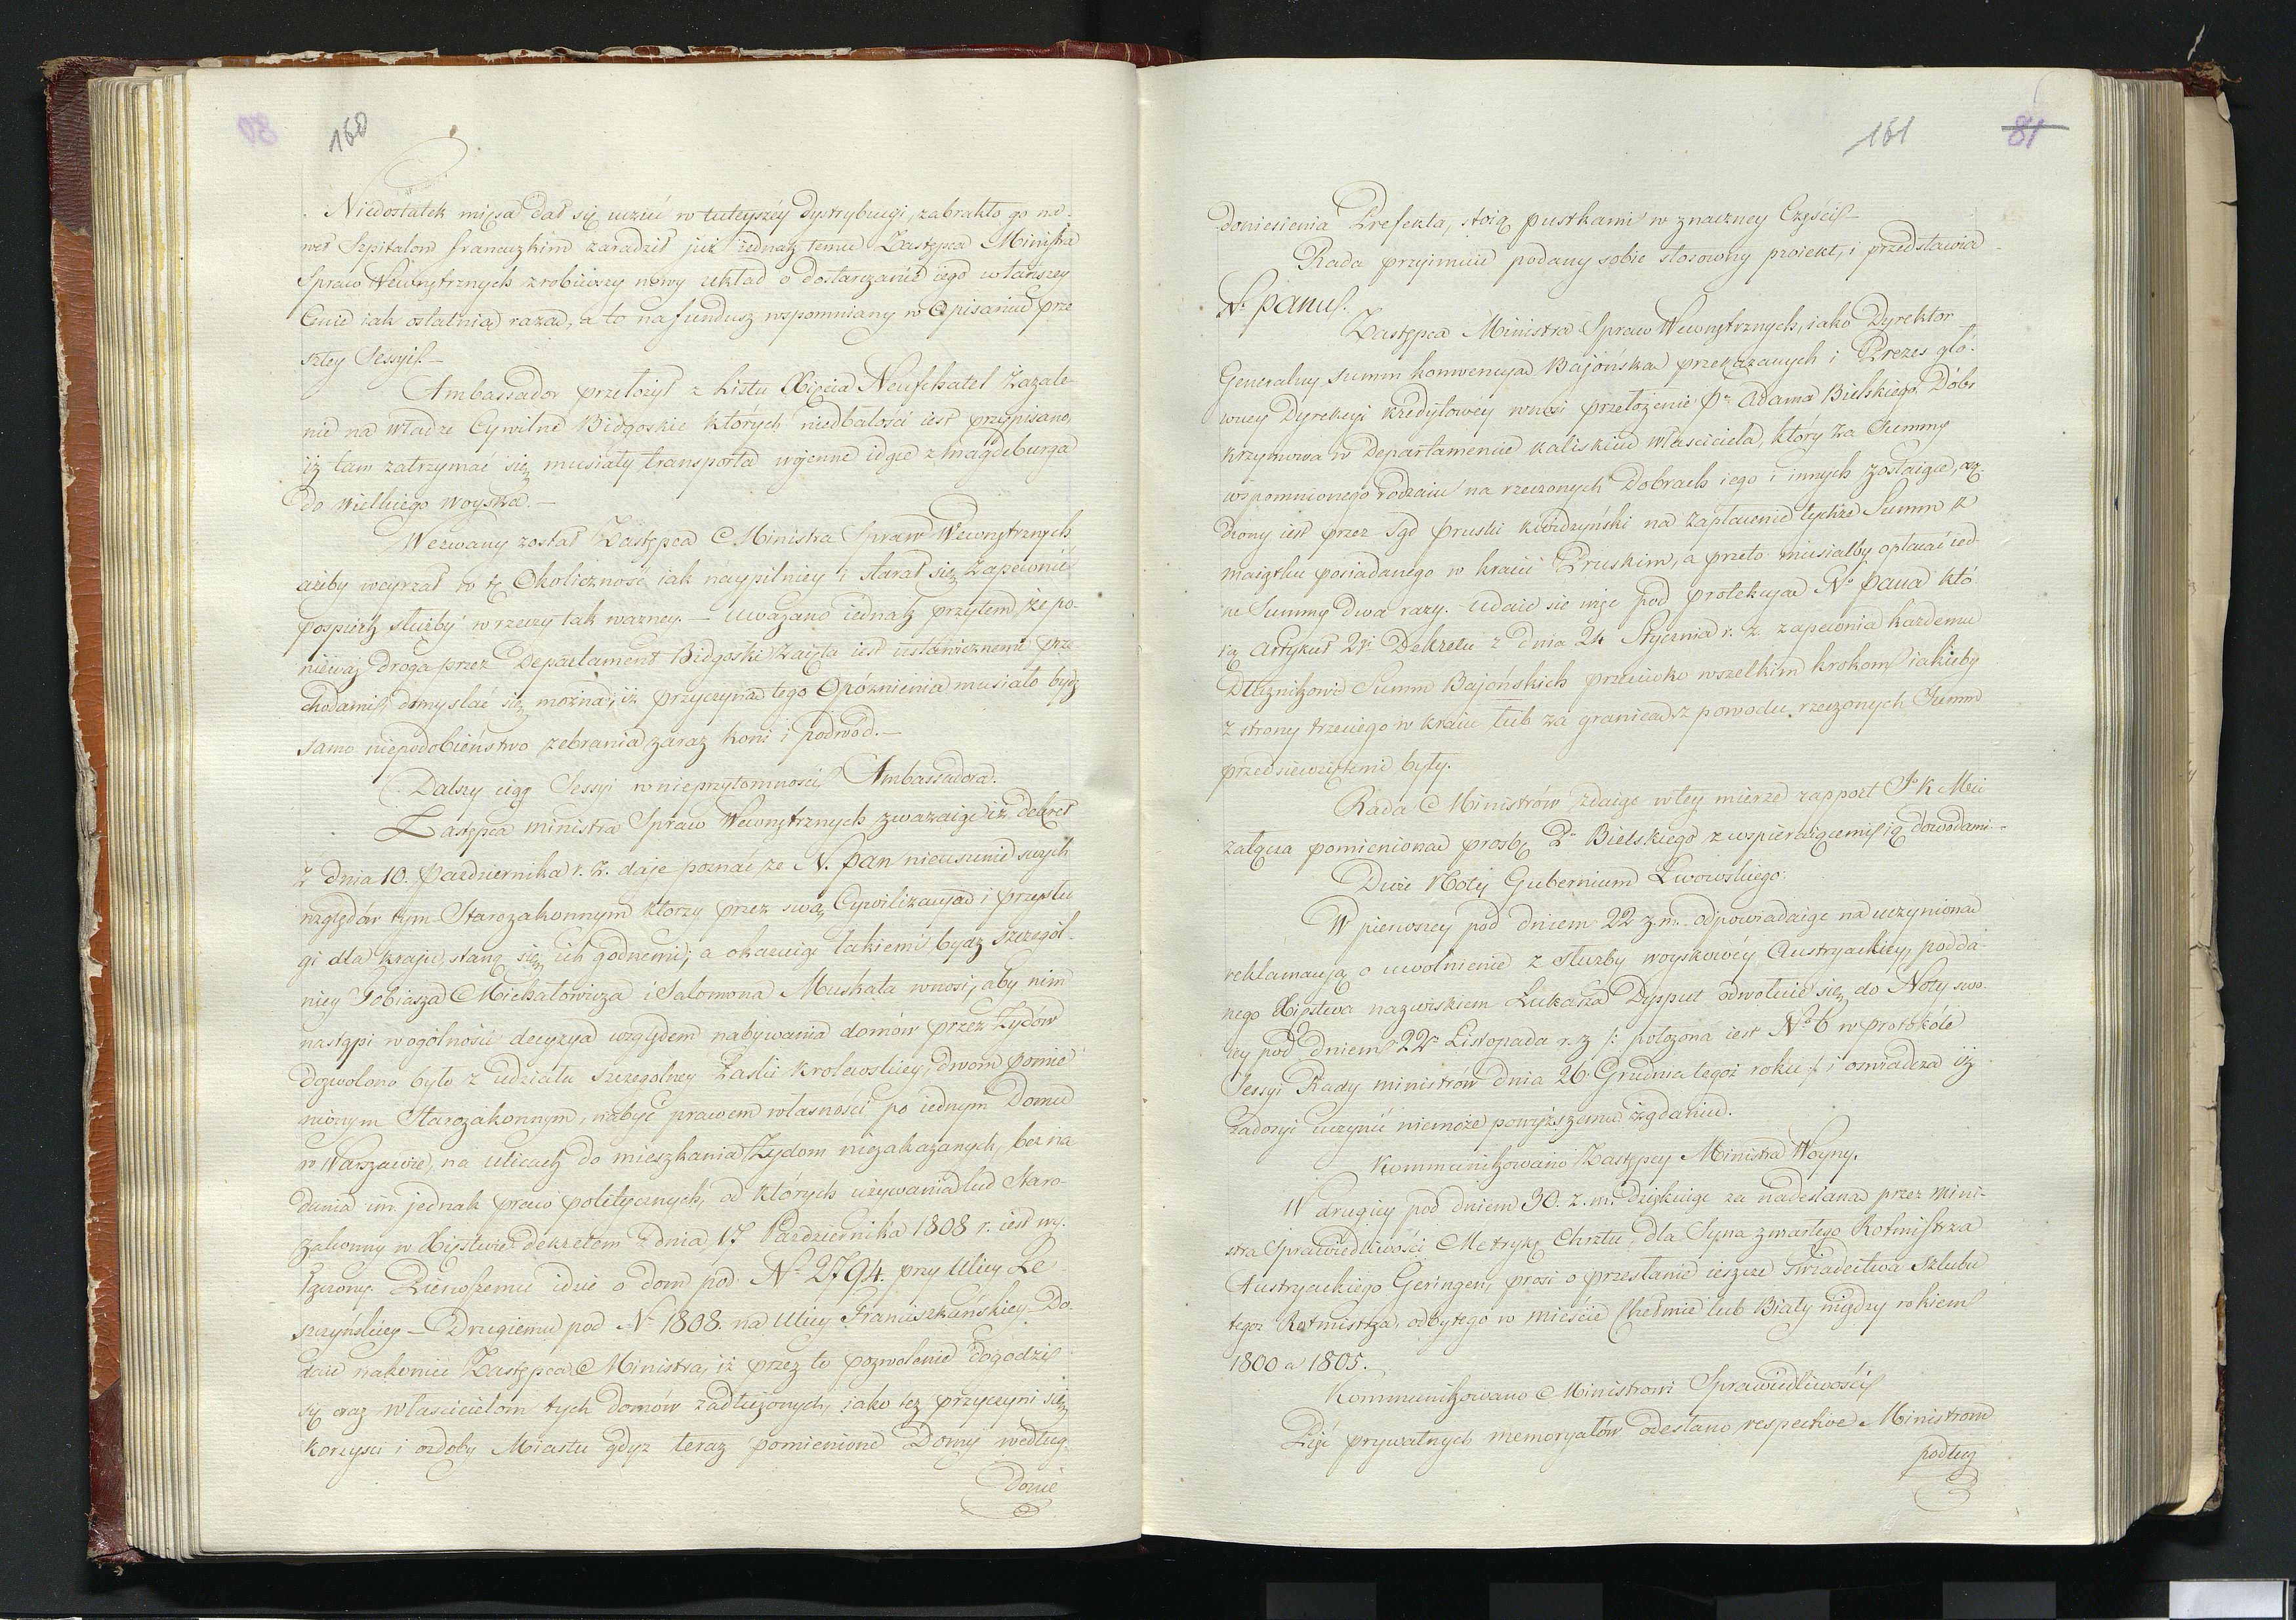 160
Niedostatek mięsa dał się uczuć w tuteyszéy dystrybucyi, zabrakło go na-
wet Szpitalom francuzkim zaradził już iednak temu Zastępca Ministra
Spraw Wewnętrznych zrobiwszy nowy układ o dostarczanie iego w tańszey
Cenie iak ostatnią razą, a to na fundusz wspomniany w Opisaniu prze
szłey Sessyi.—
Ambassador przełożył z listu Xięcia Neufchatel Zazale-
nie na władze Cywilne Bidgoskie których niedbałości iest przypisano,
iż tam zatrzymać się musiały transporta woienne idące z Magdeburga
do wielkiego woyska.—
Wezwany został Zastępca Ministra Spraw Wewnętrznych
ażeby weyrzał w tę Okoliczność iak naypilniey i starał się zapewnić
pospiech służby w rzeczy tak wazney.— Uwazano iednak przytem że po-
nieważ droga przez Departament Bidgoski zaięta iest ustawicznemi prze-
chodami, domyslać się można, iż przyczyną tego Opóznienia musiało bydz
samo niepodobieństwo zebrania zaraz koni i podwód.—
Dalszy ciąg Sessyi w nieprzytomności Ambassadora.
Zastępca Ministra Spraw Wewnętrznych zwazaiąc iż dekret
z dnia 10. Pazdziernika r. z. daje poznać ze N. Pan nieusunie swych
względów tym Starozakonnym ktorzy przez swą Cywilizacyą i przysłu
gi dla kraju, staną się ich godnemi; a okazuiąc takiemi bydz szczegól-
niey Tobiasza Michałowicza i Salomona Muskata wnosi, aby nim
nastąpi w ogólności decyzya względem nabywania domów przez Żydów
dozwolono było z udziału szczególney Łaski Krolewskiey, dwom pomie
nionym Starozakonnym, nabyć prawem własności po iednym Domu
w Warszawie, na ulicach do mieszkania Żydom niezakazanych, bez na
dania im jednak praw politycznych, od których używania lud Staro-
zakonny w Xięstwie dekretem z dnia 17 Pazdziernika 1808 r. iest wy-
łączony. Pierwszemu idzie o dom pod Nº 2794. przy Ulicy Le-
szczyńskiey — Drugiemu pod Nº 1808. na Ulicy Franciszkańskiey. Do-
daie nakoniec Zastępca Ministra, iż przez to pozwolenie dogodzi
się oraz właścicielom tych domów zadłużonych, iako też przyczyni się
korzyści i ozdoby Miastu gdyz teraz pomienione Domy według
Donie
161
81
doniesienia Prefekta, stoią pustkami w znaczney Części.—
Rada przyimuie podany sobie stosowny proiekt, i przedstawia
N. Panu.
Zastępca Ministra Spraw Wewnętrznych, iako Dyrektor
Generalny summ konwencyą Bajońską przekazanych i Prezes głó-
wney Dyrekcyi kredytowey wnosi przełożenie Pa Adama Bielskiego Dóbr
Krzymowa w Departamencie kaliskim własciciela, który za Summy
wspomnionego rodzaiu na rzeczonych Dobrach iego i innych zostaiące, są-
dzony iest przez Sąd pruski kwidzyński na zapłacenie tychże Summ z
maiątku posiadanego w kraiu Pruskim, a przeto musiałby opłacać ied-
ne Summy dwa razy. Udaie sie więc pod protekcyą No Pana któ-
rą Artykuł 2gi Dekretu z dnia 24 Stycznia r. z. zapewnia kazdemu
Dłuznikowi Summ Bajońskich przeciwko wszelkim krokom iakieby
z strony trzeciego w kraiu lub za granicą z powodu rzeczonych Summ
przedsiewziętemi były.
Rada Ministrów zdaiąc w tey mierze rapport Jo K Mci
załącza pomienioną prośbę Pa Bielskiego z wspieraiącemi ią dowodami.—
Dwie Noty Gubernium Lwowskiego.
W pierwszey pod dniem 22 z. m. odpowiadaiąc na uczynioną
reklamacyą o uwolnienie z służby woyskowéy Austryackiey, podda-
nego Xięstwa nazwiskiem Lukasza Dypput odwołuie się do Noty swo-
iey pod dniem 22go Listopada r. z /: położona iest No 6 w protokóle
Sessyi Rady Ministrów dnia 26 Grudnia tegoż roku :/ i oswiadcza iż
zadosyć uczynić niemoże powyższemu żądaniu.
Kommunikowano Zastępcy Ministra Woyny.
W drugiey pod dniem 30. z. m. dziękuiąc za nadesłaną przez Mini-
stra Sprawiedliwości Metrykę Chrztu, dla Syna zmarłego Rotmistrza
Austryackiego Geringen, prosi o przesłanie ieszcze świadectwa Szlubu
tegoz Rotmistrza, odbytego w mieście Chełmie lub Biały między rokiem
1800 a 1805.
Kommunikowano Ministrowi Sprawiedliwości
Pięć prywatnych memoryałów odesłano respective Ministrom
podług